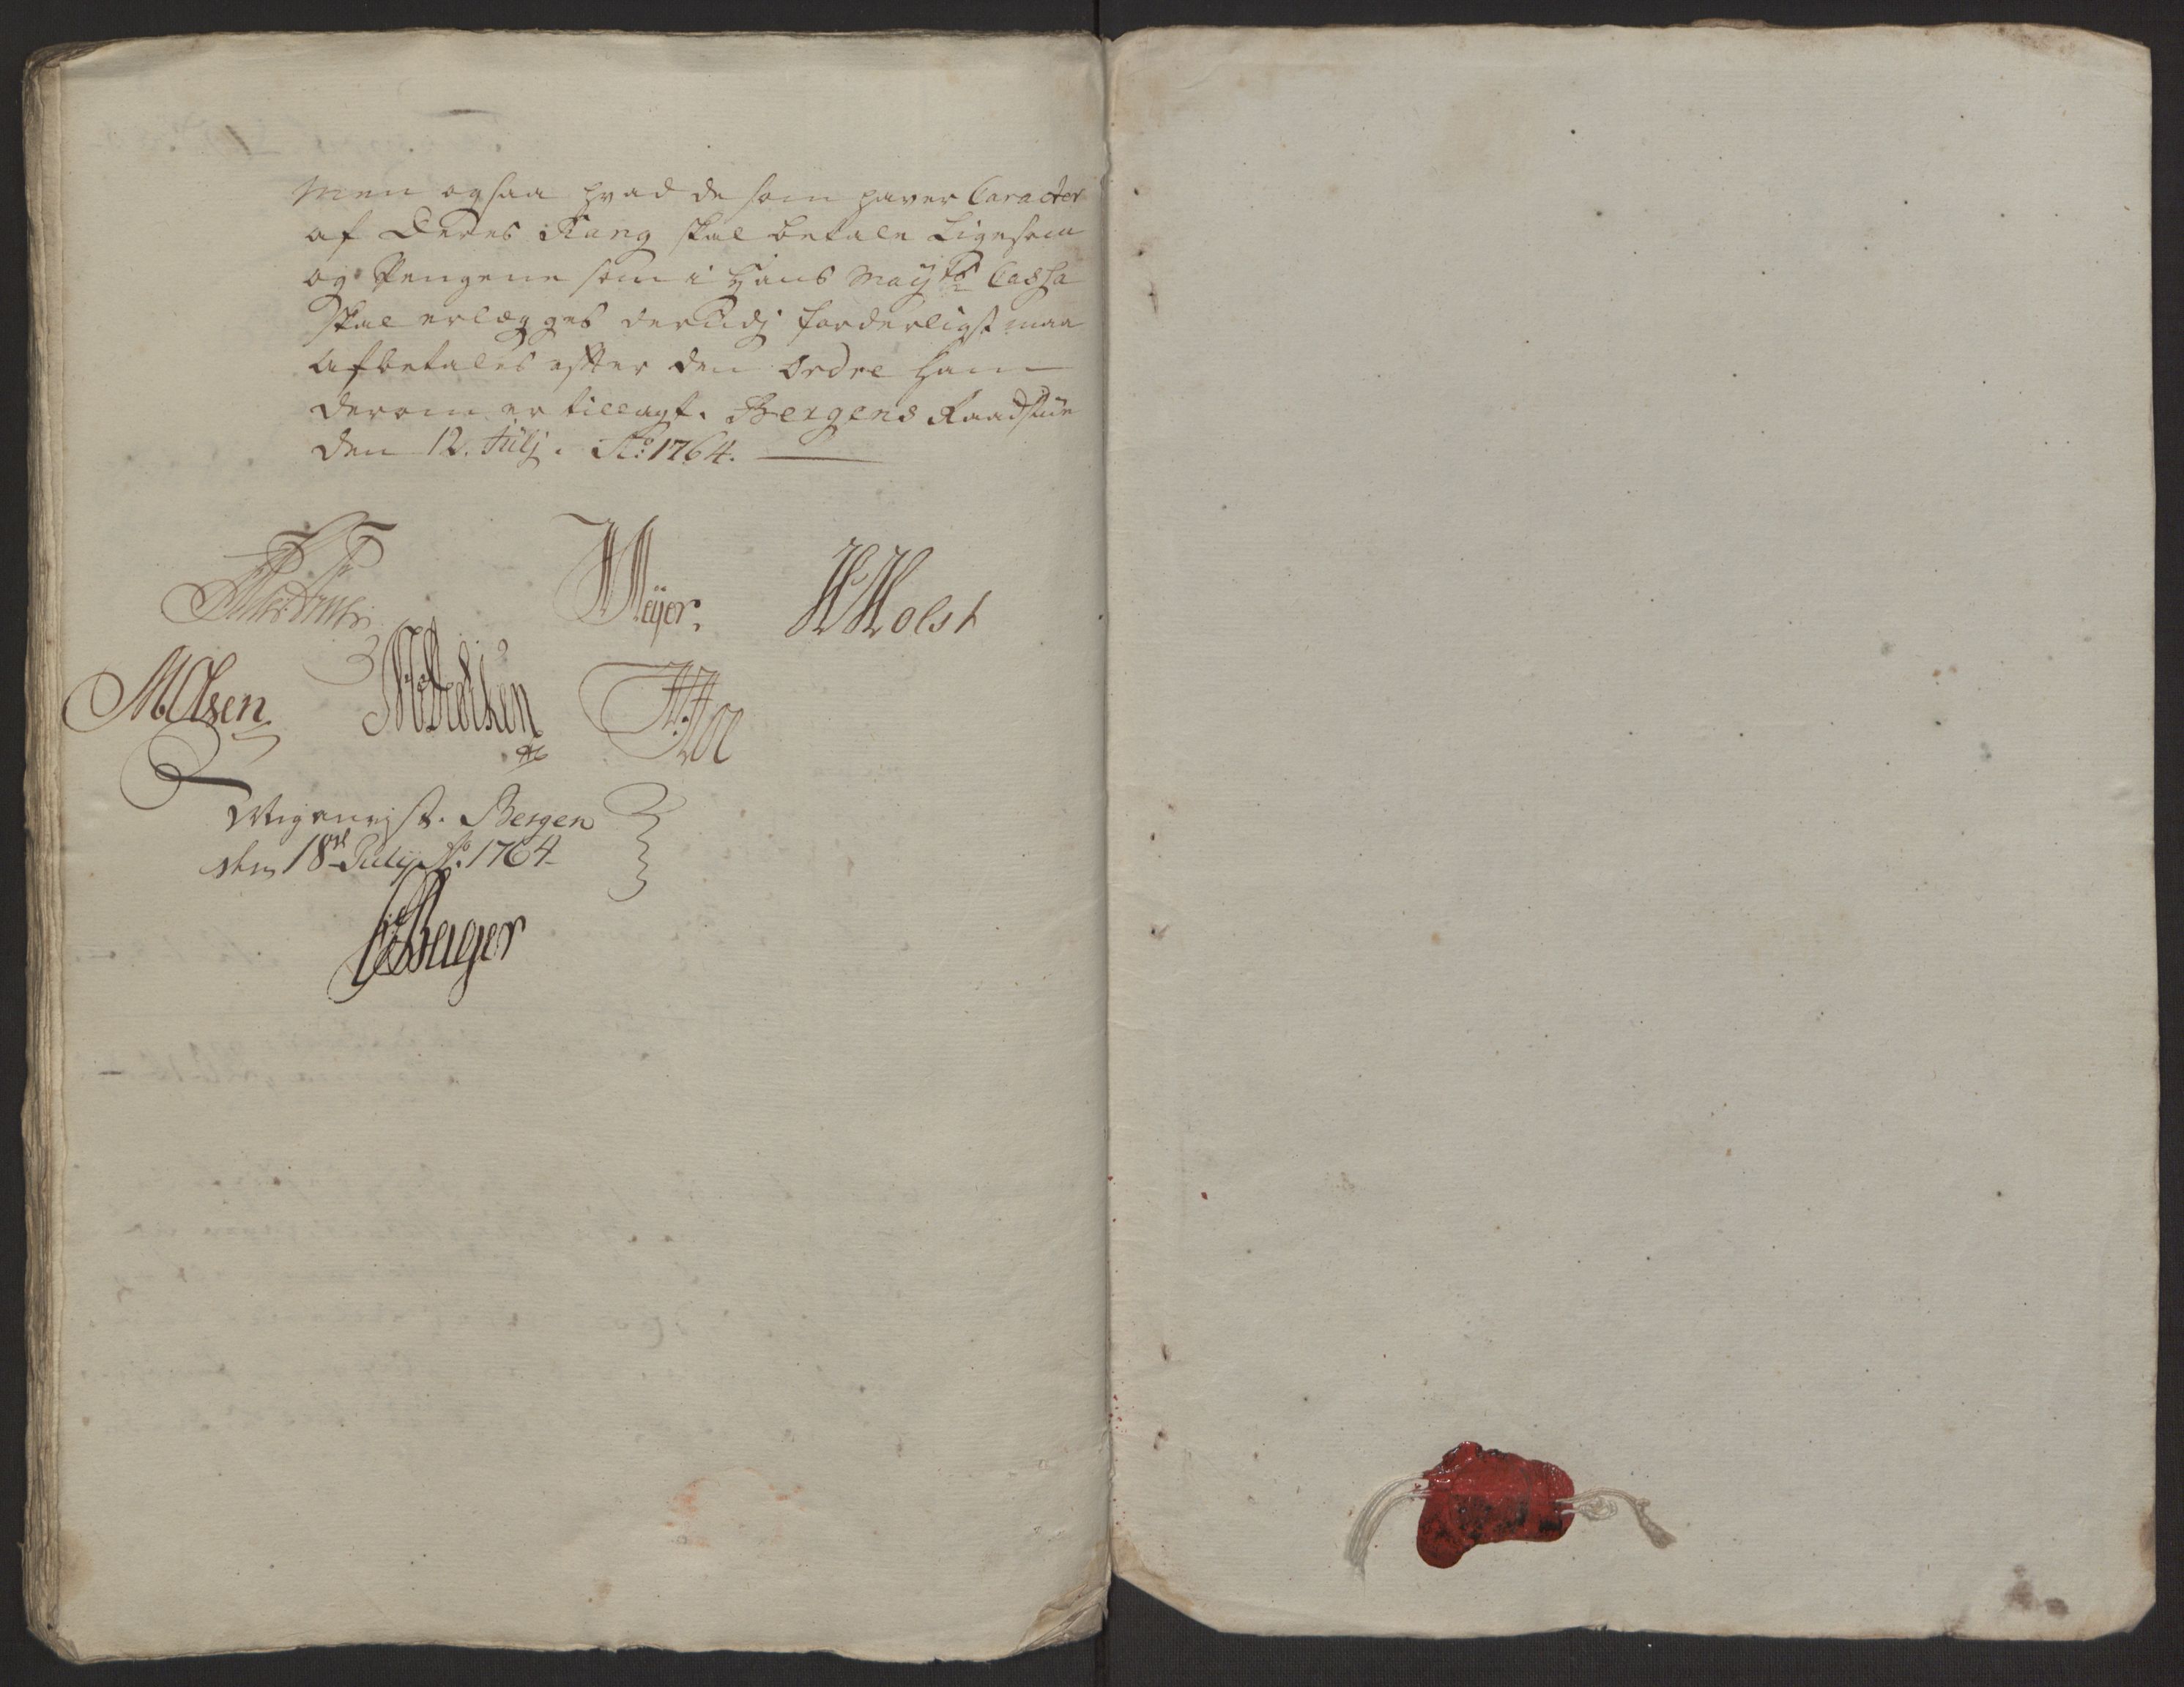 Men ogsaa hvad de som haver Caracter
af Deres Rang skal betale Ligesom
og Pengene som i Hans Mayts Cassa
skal erlægges derudj forderligst maa
afbetales efter den Ordre ham
derom er tillagt. Bergens Raadstue
den 12. Julj. Ao: 1764.
Meyer. HHolst
MOlsen
Bergen
den 18de Julij Ao. 1764